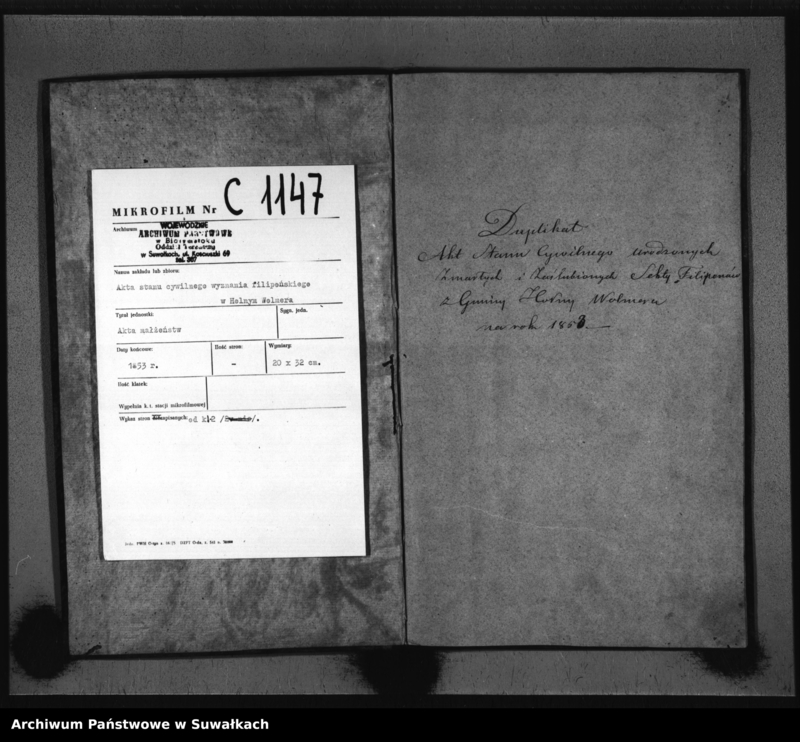 MIKROFILM Nr C 1147
Archiwum
WOJEWÓDZKIE
ARCHIWUM PAŃSTWOWE
w Białymstoku
Oddział Terenowy
w Suwałkach, ul. Kościuszki 69
tel. 507
Nazwa zakładu lub zbioru:
Akta stanu cywilnego wyznania filipońskiego
w Hołnym Wolmera
Tytuł jednostki:
Akta małżeństw
Sygn. jedn.
Daty końcowe:
1853 r.
Ilość stron:
-
Wymiary:
20 x 32 cm.
Ilość klatek:
Wypełnia k. t. stacji mikrofilmowej
Wykaz stron
od k.1-2
Duplikat
Akt Stanu Cywilnego urodzonych
Zmarłych i Zaślubionych Sekty Filiponów
z Gminy Hołny Wolmera
na rok 1853.
Archiwum Państwowe w Suwałkach